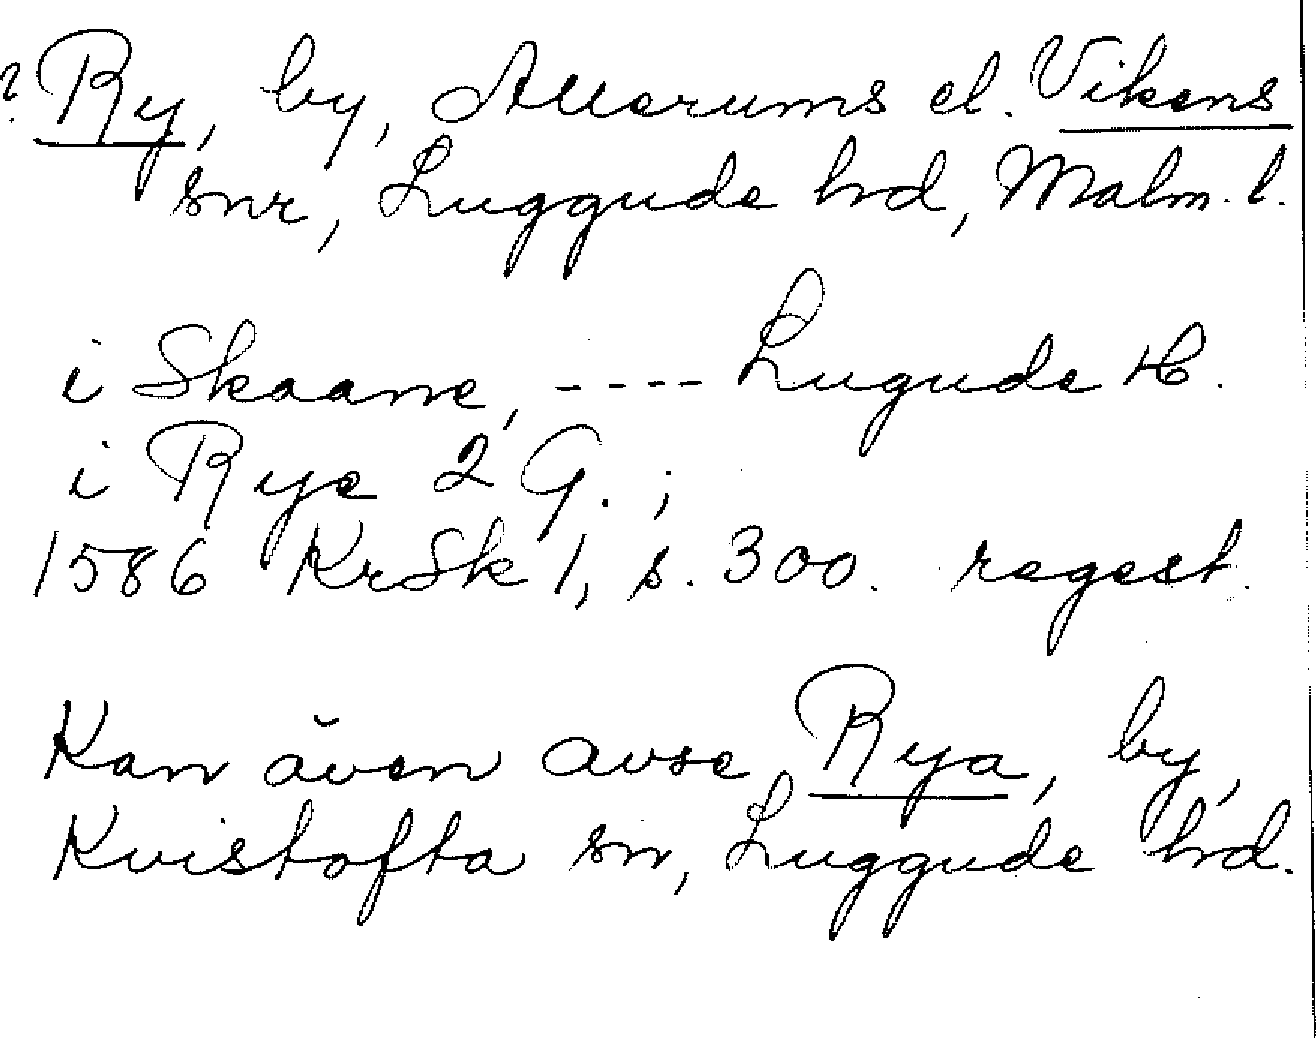 ? Ry, by, Allerums el. Vikens
snr, Luggude hrd, Malm. l.
i Skaane, ---- Lugude H.
i Rye 2 G. ;
1586 KrSk 1, s. 300. regest.
Kan även avse Rya, by,
Kvistofta sn, Luggude hrd.